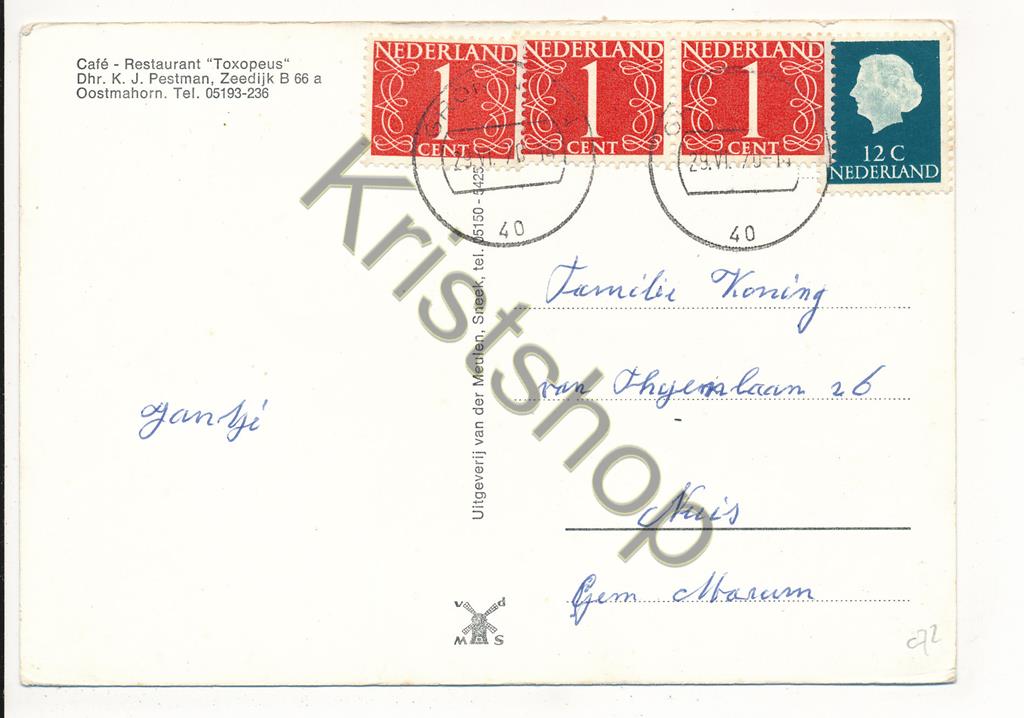 Café - Restaurant "Toxopeus"
Dhr. K. J. Pestman, Zeedijk B 66 a
Oostmahorn. Tel. 05193-236
NEDERLAND
1
CENT
NEDERLAND
1
CENT
NEDERLAND
1
CENT
12 C
NEDERLAND
40
29.VI.
40
Uitgeverij van der Meulen, Sneek, tel. 05150 - 5425
Familie Koning
van Thyenlaan 26
Nuis
Gem Marum
Jantje
v d
M S
c72
Kristshop